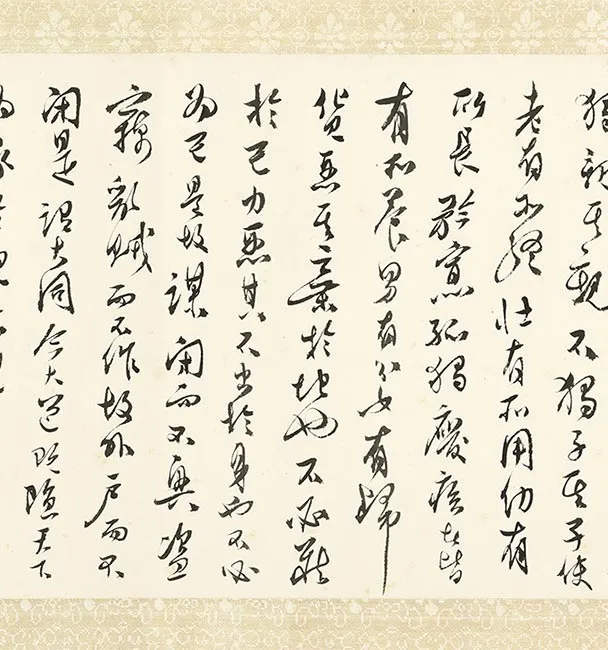 獨親其親不獨子其子使
老有所終壯有所用幼有
所長矜寡孤獨廢疾者皆
有所養男有分女有歸
貨惡其棄於地也不必藏
於己力惡其不出於身也不必
為己是故謀閉而不興盜
竊亂賊而不作故外戶而不
閉是謂大同今大道既隱天下
為家各親其親